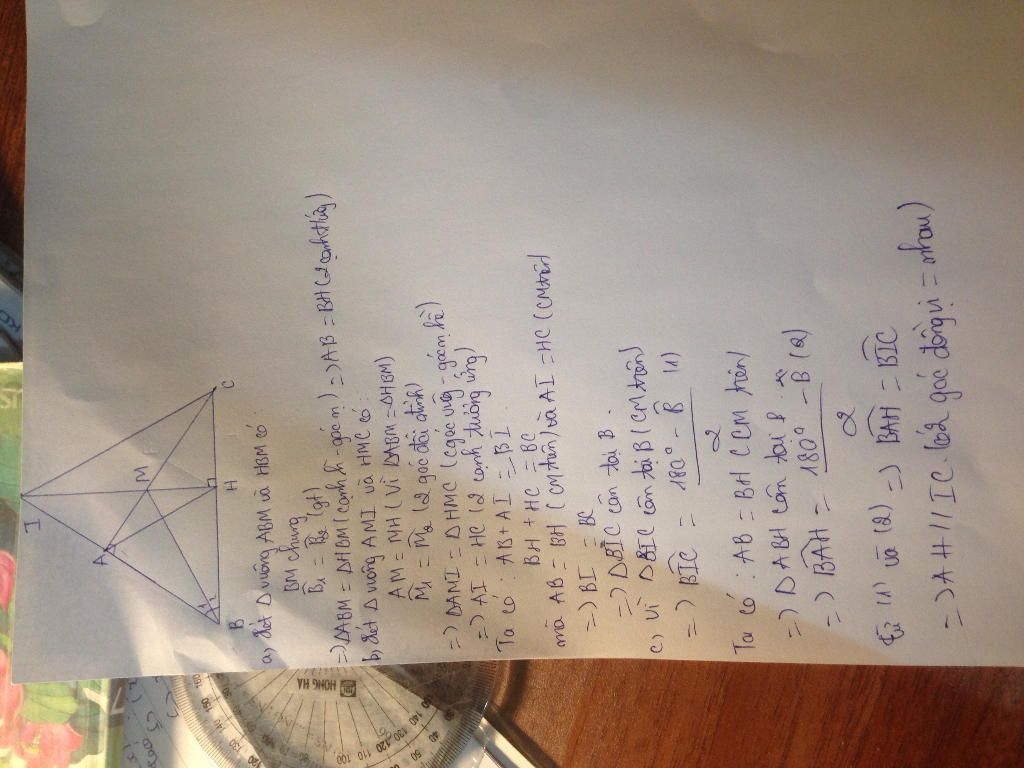 I
A
M
B
H
C
a) Xét Δ vuông ABM và HBM có:
BM chung
B̂₁ = B̂₂ (gt)
=> ΔABM = ΔHBM (cạnh h - góc n) => AB = BH (2 cạnh t/ứng)
b) Xét Δ vuông AMI và HMC có:
AM = MH (Vì ΔABM = ΔHBM)
M̂₁ = M̂₂ (2 góc đối đỉnh)
=> ΔAMI = ΔHMC (cgóc vuông - góc n kề)
=> AI = HC (2 cạnh tương ứng)
Ta có: AB + AI = BI
BH + HC = BC
mà AB = BH (cm trên) và AI = HC (cm trên)
=> BI = BC
=> ΔBIC cân tại B.
c) Vì ΔBIC cân tại B (cm trên)
=> BIC = 180° - B̂ / 2 (1)
Ta có: AB = BH (CM trên)
=> ΔABH cân tại B.
=> BAH = 180° - B̂ / 2 (2)
Từ (1) và (2) => BAH = BIC
=> AH // IC. (có 2 góc đồng vị = nhau)
HONG HA